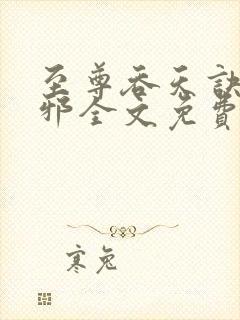 至尊吞天訣
邪全文免費
寒兔